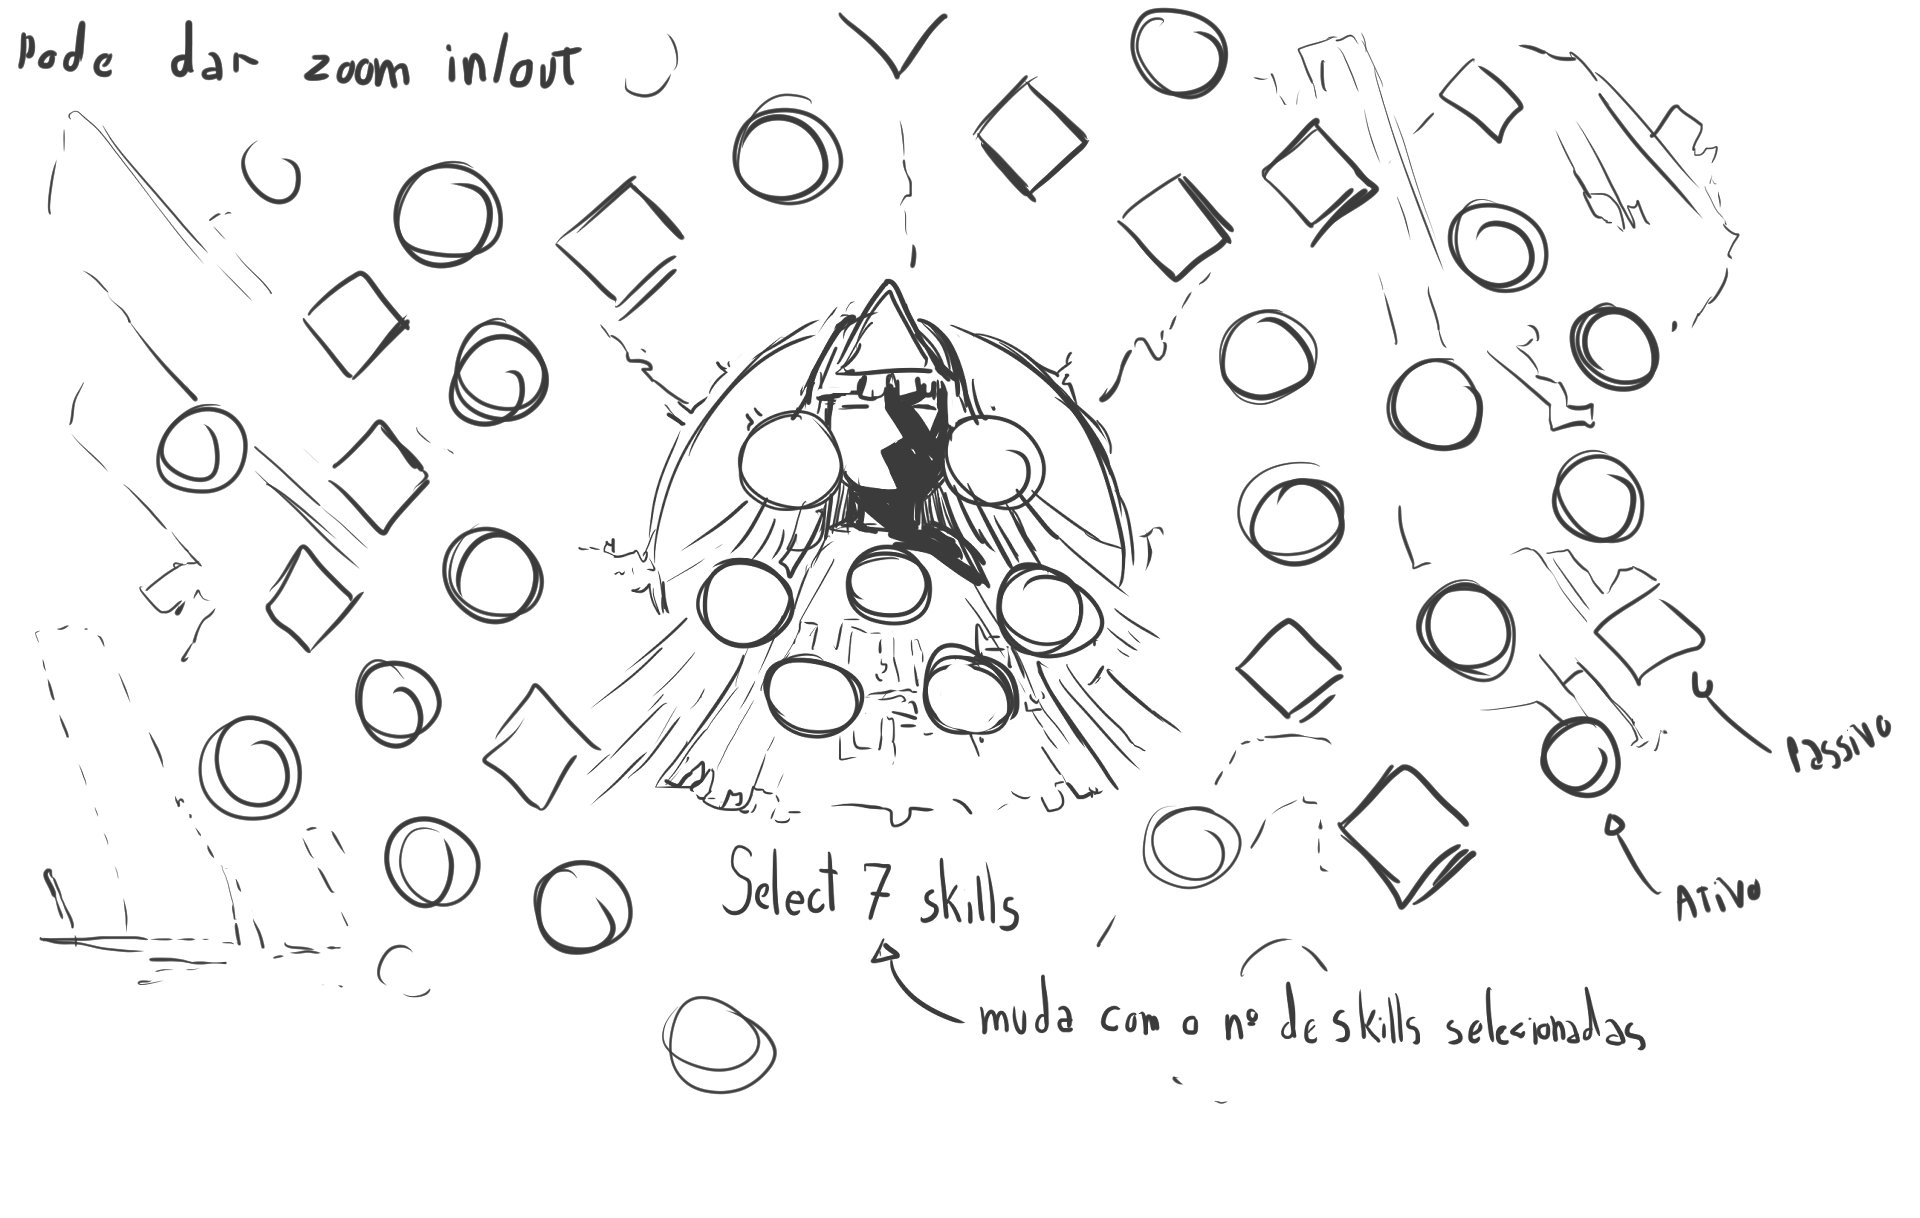 Pode dar zoom in/out
Passivo
Ativo
Select 7 skills
muda com o nº de skills selecionadas